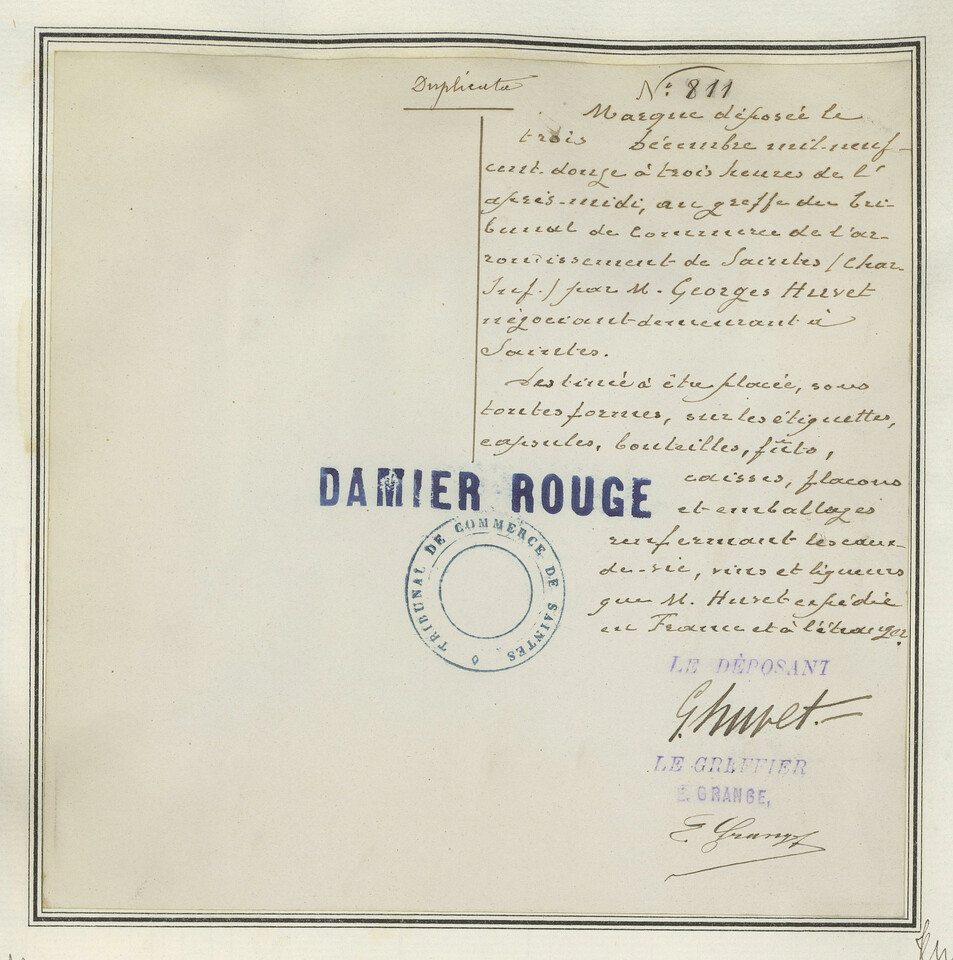 Duplicata
N° 811
Marque déposée le
trois décembre mil-neuf-
cent-douze à trois heures de l'
après-midi, au greffe du tri-
bunal de Commerce de l'ar-
rondissement de Saintes (Char.
Inf.) par M. Georges Huvet
négociant demeurant à
Saintes.
Destinée à être placée, sous
toutes formes, sur les étiquettes,
capsules, bouteilles, fûts,
caisses, flacons
et emballages
renfermant les eaux-
de-vie, vins et liqueurs
que M. Huvet expédie
en France et à l'étranger.
DAMIER ROUGE
TRIBUNAL DE COMMERCE DE SAINTES
LE DÉPOSANT
G. Huvet
LE GREFFIER
E. GRANGE,
E. Grange